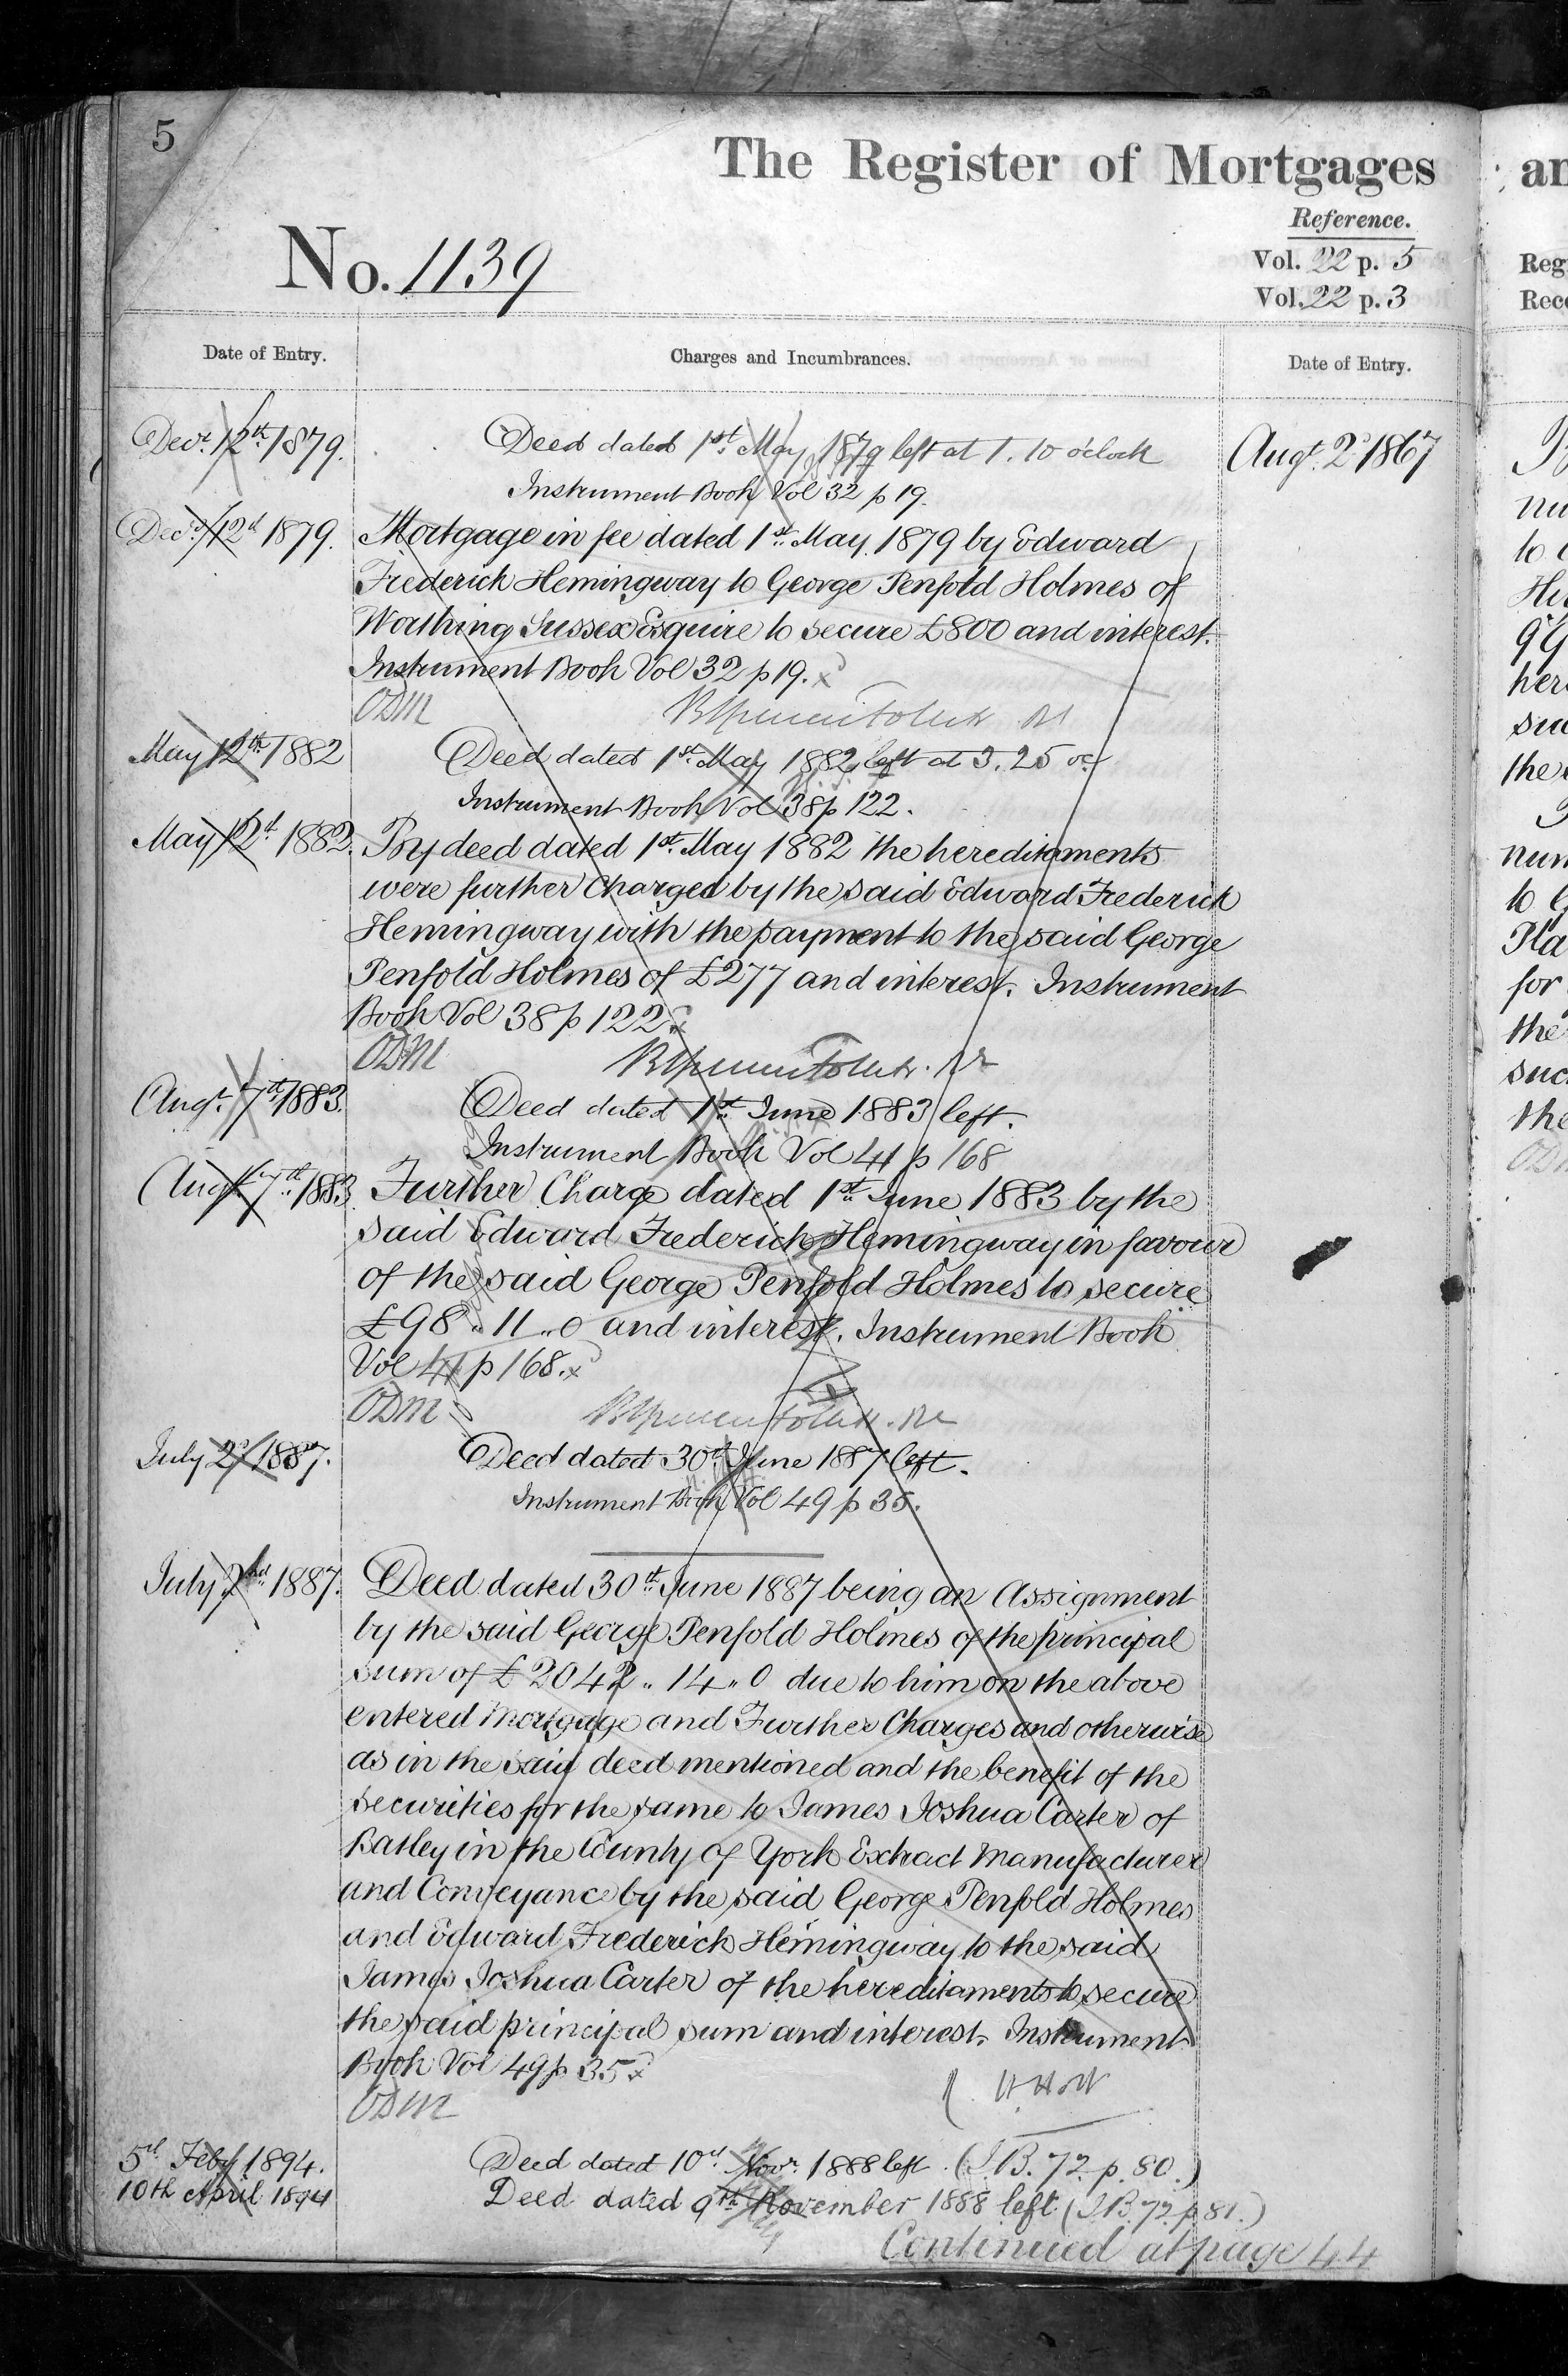 5
The Register of Mortgages
Reference.
No. 1139
Vol. 22 p. 5
Vol. 22 p. 3
Date of Entry.
Charges and Incumbrances.
Date of Entry.
Decr. 12th 1879.
Deed dated 1st May 1879 left at 1.10 o'clock
Augt. 2d 1867
Instrument Book Vol 32 p 19.
Decr. 12th 1879.
Mortgage in fee dated 1st May 1879 by Edward
Frederick Hemingway to George Penfold Holmes of
Worthing Sussex Esquire to secure £800 and interest.
Instrument Book Vol 32 p 19.
ODM
May 12th 1882
Deed dated 1st May 1882 left at 3.25 oc
Instrument Book Vol 38 p 122.
May 12th 1882.
By deed dated 1st May 1882 the hereditaments
were further charged by the said Edward Frederick
Hemingway with the payment to the said George
Penfold Holmes of £277 and interest. Instrument
Book Vol 38 p 122
ODM
Augt. 7th 1883.
Deed dated 1st June 1883 left.
Instrument Book Vol 41 p 168
Augt. 7th 1883
Further Charge dated 1st June 1883 by the
said Edward Frederick Hemingway in favour
of the said George Penfold Holmes to secure
£98 " 11 " 0 and interest. Instrument Book
Vol 41 p 168.
ODM
July 2d 1887.
Deed dated 30th June 1887 left.
Instrument Book Vol 49 p 35.
July 2nd 1887.
Deed dated 30th June 1887 being an Assignment
by the said George Penfold Holmes of the principal
sum of £2042 " 14 " 0 due to him on the above
entered Mortgage and Further Charges and otherwise
as in the said deed mentioned and the benefit of the
securities for the same to James Joshua Carter of
Batley in the County of York Extract Manufacturer
and Conveyance by the said George Penfold Holmes
and Edward Frederick Hemingway to the said
James Joshua Carter of the hereditaments to secure
the said principal sum and interest. Instrument
Book Vol 49 p 35
ODM
H Holt
5th Feby 1894.
Deed dated 10th Novr. 1888 left. (I.B. 72. p. 80.)
10th April 1894
Deed dated 9th November 1888 left (I.B. 72. p 81.)
Continued at page 44
an
Reg
Reco
nu
to
her
the
num
to
Pla
for
the
suc
the